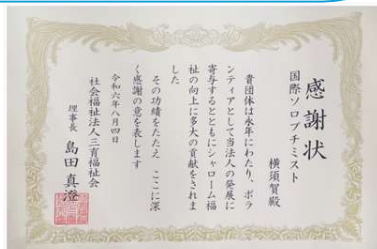 感謝状
国際ソロプチミスト
横須賀殿
貴団体は永年にわたり、ボラ
ンティアとして当法人の発展に
寄与するとともにシャローム福
祉の向上に多大の貢献をされま
した
その功績をたたえ ここに深
く感謝の意を表します
令和六年八月四日
社会福祉法人三育福祉会
理事長 島田真澄